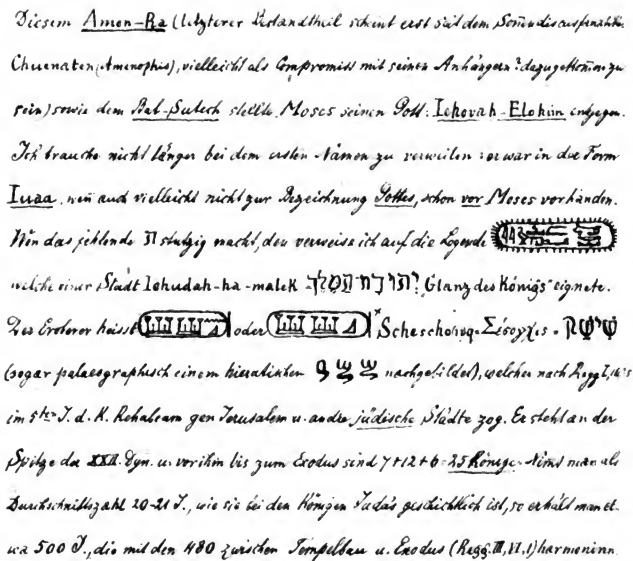 Diesem Amon-Ra (letzterer Bestandtheil scheint erst seit dem Sonnendiscusfanatiker
Chuenaten (Amenophis), vielleicht als Compromiss mit seinen Anhängern? dazugekommen zu
sein) sowie dem Bal-Sutech stellte Moses seinen Gott: Iehovah-Elohim entgegen.
Ich brauche nicht länger bei dem ersten Namen zu verweilen: er war in der Form
Iuaa, wenn auch vielleicht nicht zur Bezeichnung Gottes, schon vor Moses vorhanden.
Wen das fehlende ה stutzig macht, den verweise ich auf die Legende
welche einer Stadt Iehudah-ha-malek יהודה־המלך? „Glanz des Königs" eignete.
Der Eroberer heisst oder Scheschonq - Σέσογχις = שישק
(sogar palaeographisch einem hieratischen nachgebildet), welcher nach Regg I,
im 5ten J. d. K. Rehabeam gen Jerusalem u. andre jüdische Städte zog. Er steht an der
Spitze der XXII. Dyn. u. vor ihm bis zum Exodus sind 7+12+6=25 Könige. Nimt man als
Durchschnittszahl 20-21 J., wie sie bei den Königen Juda's geschichtlich ist, so erhält man et-
wa 500 J., die mit den 480 zwischen Tempelbau u. Exodus (Regg. III, VI, 1) harmoniren.